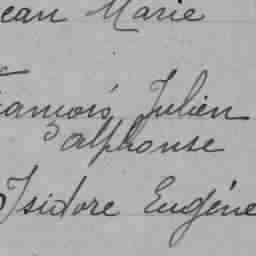 ean Marie
François Julien
alphonse
Isidore Eugène